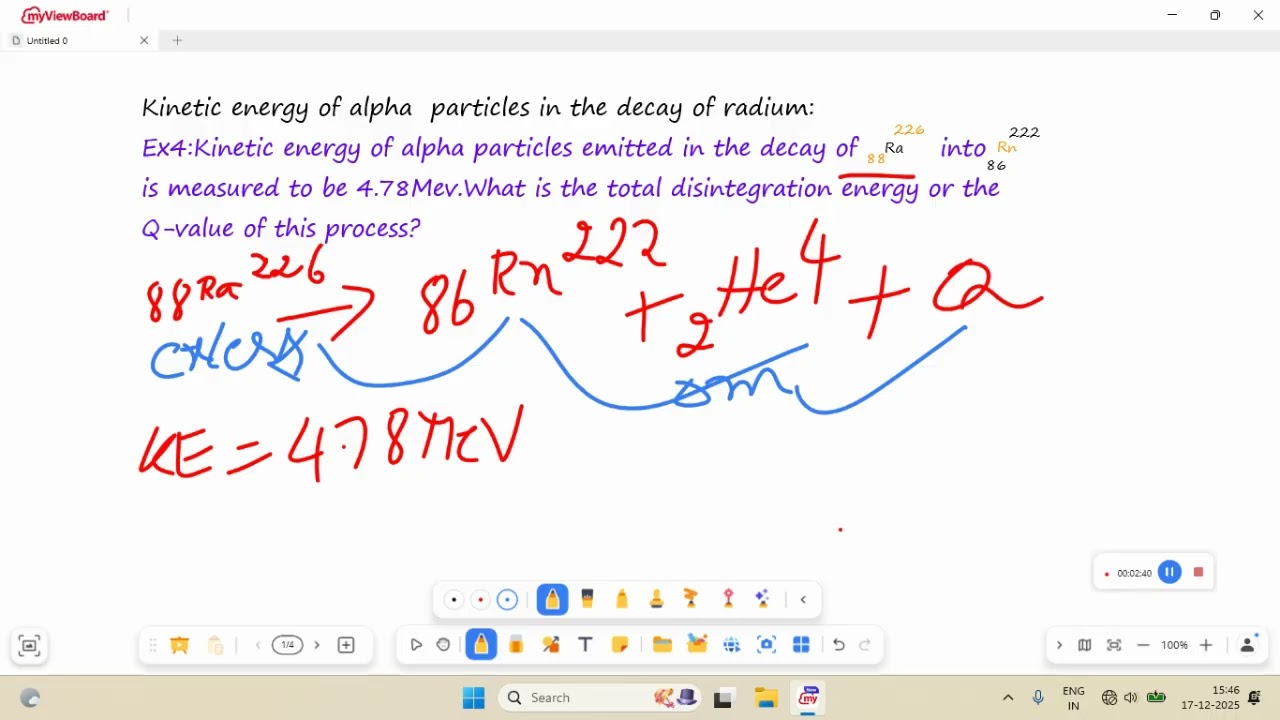 myViewBoard
Untitled 0
Kinetic energy of alpha particles in the decay of radium:
Ex4:Kinetic energy of alpha particles emitted in the decay of 88 Ra 226 into 86 Rn 222
is measured to be 4.78Mev.What is the total disintegration energy or the
Q-value of this process?
88 Ra 226 → 86 Rn 222 + 2 He 4 + Q
KE = 4.78 MeV
00:02:40
1/4
T
100%
Search
ENG
IN
15:46
17-12-2025